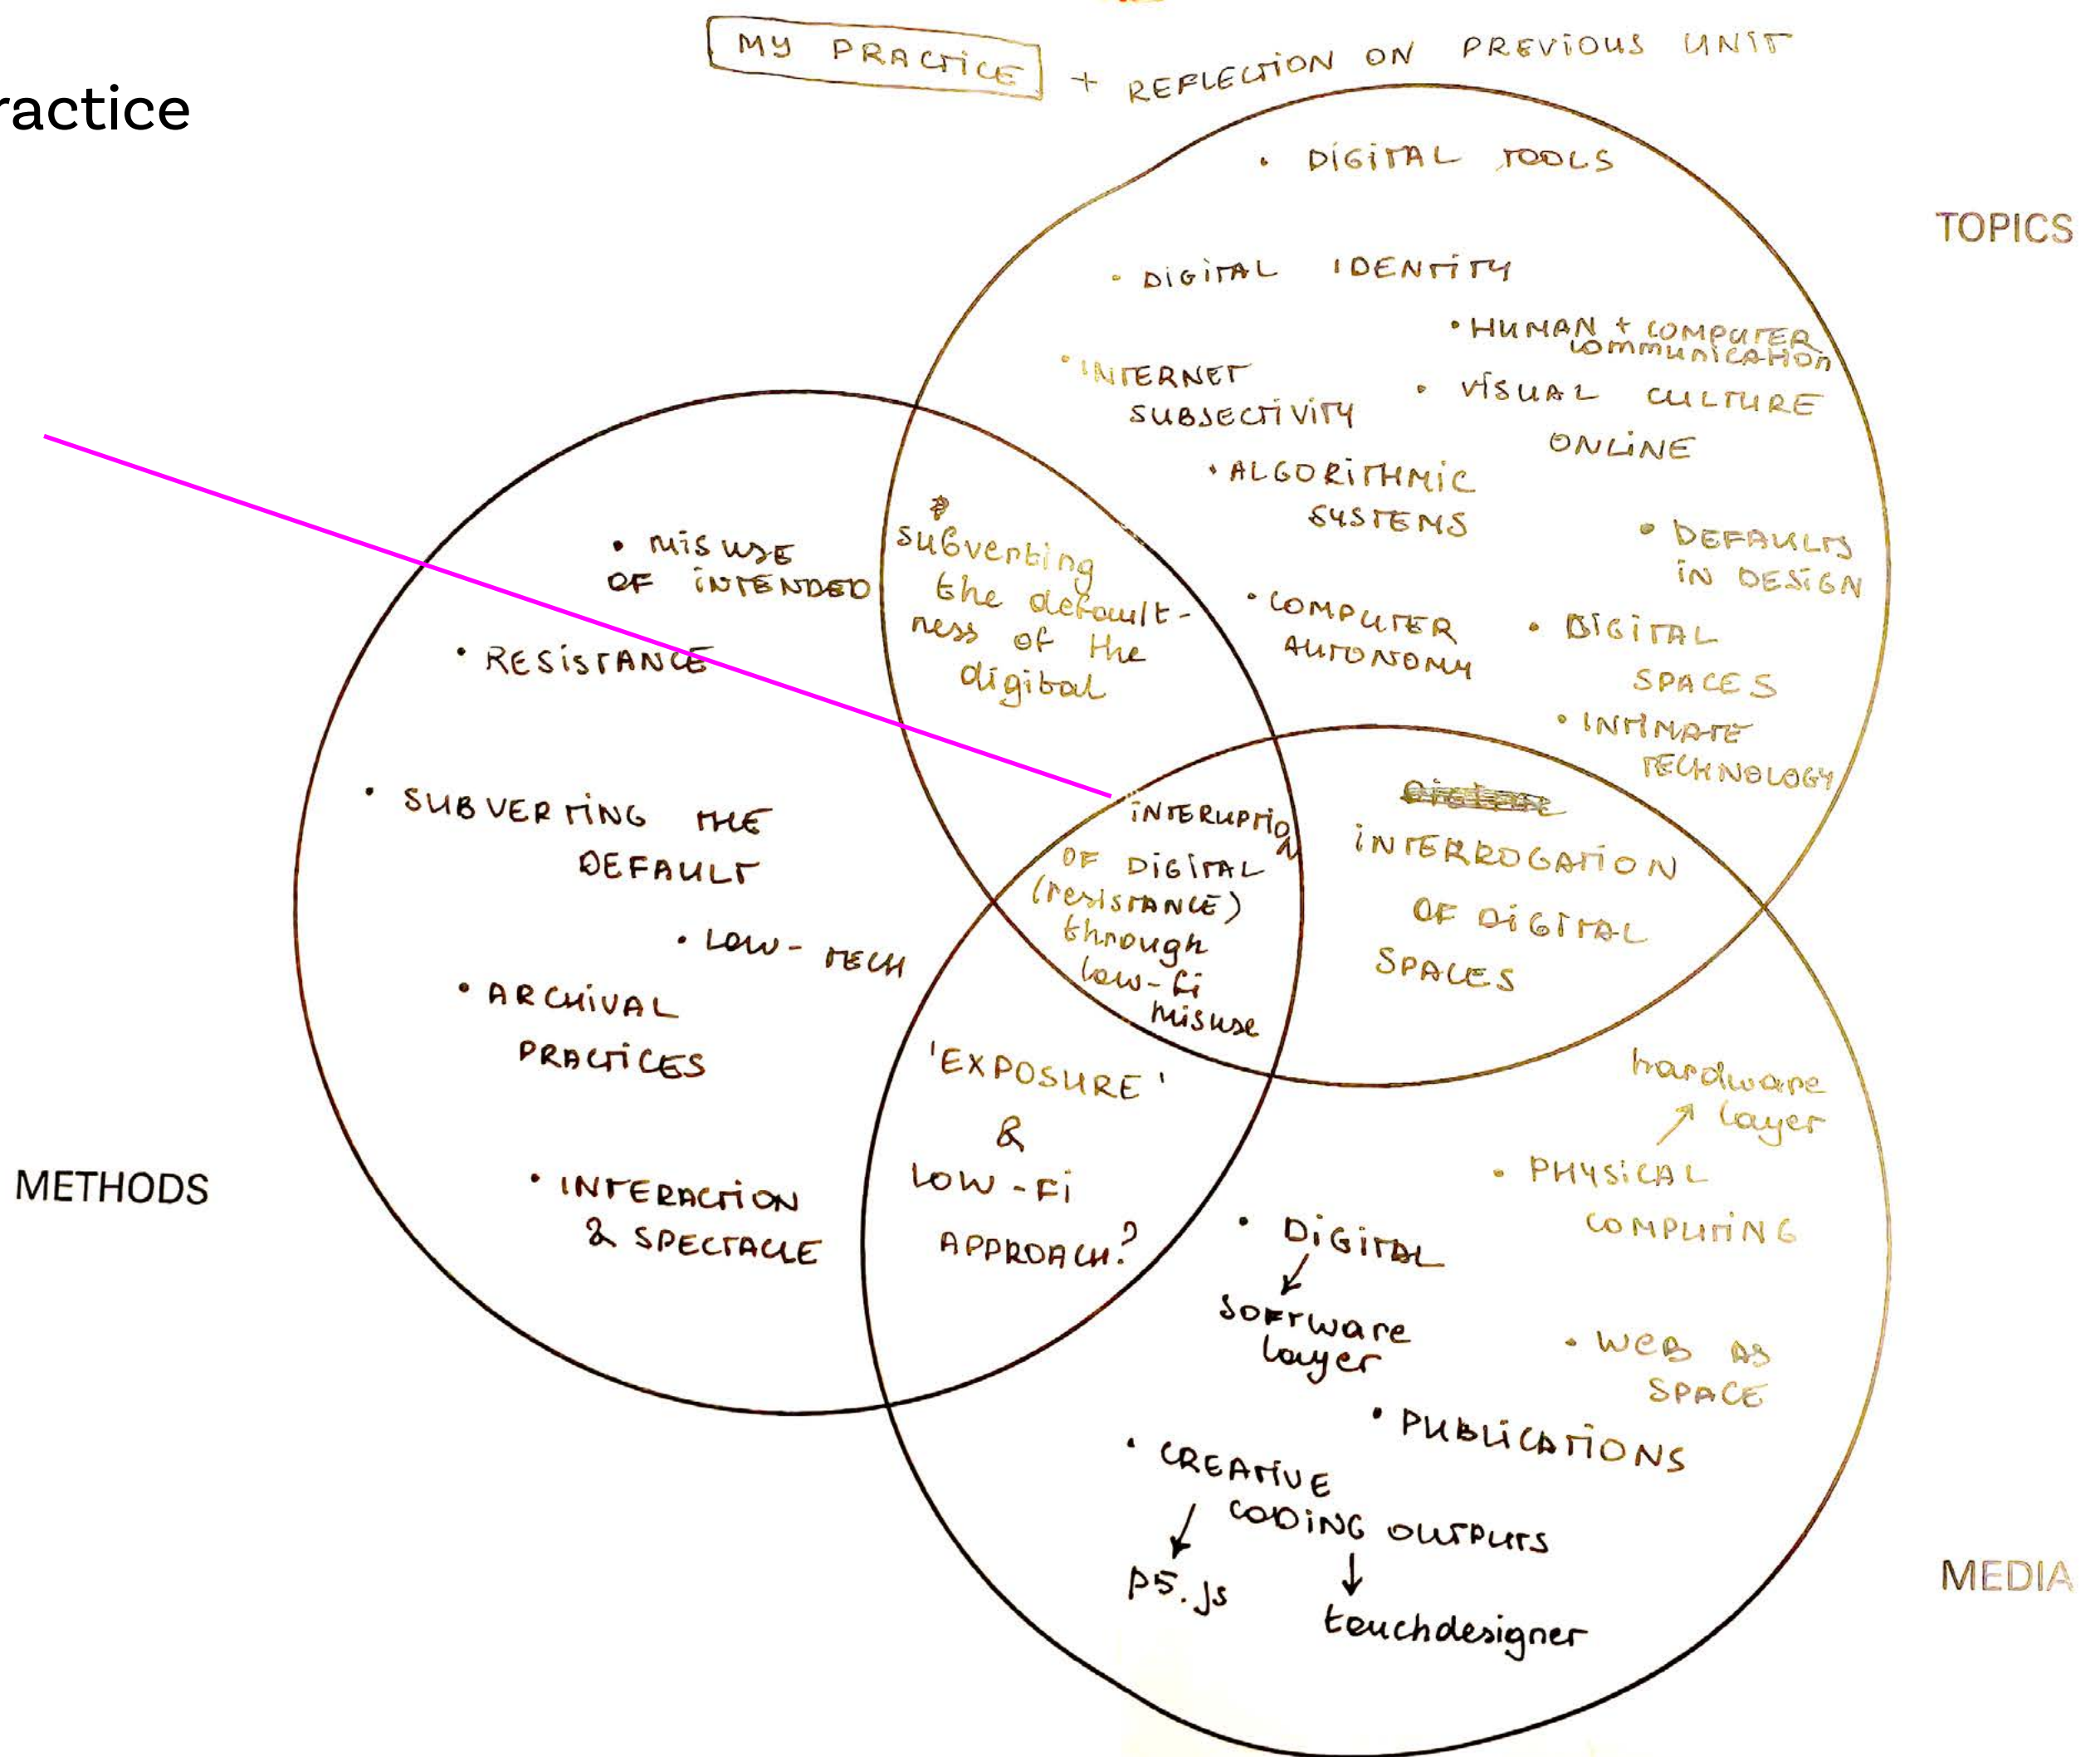 ractice
MY PRACTICE + REFLECTION ON PREVIOUS UNIT
TOPICS
• DIGITAL TOOLS
• DIGITAL IDENTITY
• HUMAN + COMPUTER
COMMUNICATION
• INTERNET
SUBJECTIVITY
• VISUAL CULTURE
ONLINE
• ALGORITHMIC
SYSTEMS
• DEFAULTS
IN DESIGN
• COMPUTER
AUTONOMY
• DIGITAL
SPACES
• INTIMATE
TECHNOLOGY
subverting
the default-
ness of the
digital
• MISUSE
OF INTENDED
• RESISTANCE
• SUBVERTING THE
DEFAULT
• LOW-TECH
• ARCHIVAL
PRACTICES
• INTERACTION
& SPECTACLE
METHODS
INTERUPTION
OF DIGITAL
(resISTANCE)
through
low-fi
misuse
INTERROGATION
OF DIGITAL
SPACES
'EXPOSURE'
&
LOW-FI
APPROACH?
hardware
layer
• PHYSICAL
COMPUTING
• DIGITAL
SOFTWARE
layer
• WEB AS
SPACE
• PUBLICATIONS
• CREATIVE
CODING OUTPUTS
p5.js
touchdesigner
MEDIA